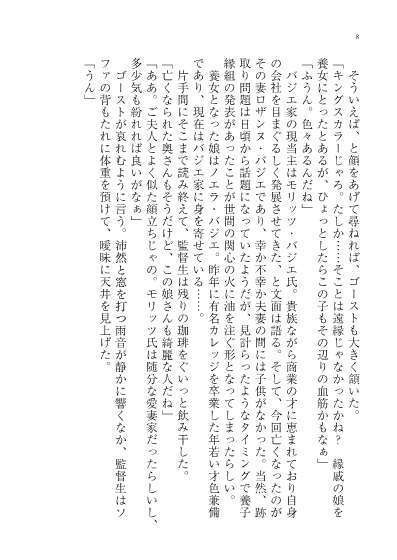 8
そういえば、と顔をあげて尋ねれば、ゴーストも大きく頷いた。
「キングスカラーじゃろ。たしか……そことは遠縁じゃなかったかね？　縁戚の娘を
養女にとったとあるが、ひょっとしたらこの子もその辺りの血筋かもなぁ」
「ふうん。色々あるんだね」
バジエ家の現当主はモリッツ・バジエ氏。貴族ながら商業の才に恵まれており自身
の会社を目まぐるしく発展させてきた、と文面は語る。そして、今回亡くなったのが
その妻ロザンヌ・バジエであり、幸か不幸か夫妻の間には子供がなかった。当然、跡
取り問題は日頃から話題になっていたようだが、見計らったようなタイミングで養子
縁組の発表があったことが世間の関心の火に油を注ぐ形となってしまったらしい。
養女となった娘はノエラ・バジエ。昨年に有名カレッジを卒業した年若い才色兼備
であり、現在はバジエ家に身を寄せている……。
片手間にそこまで読み終えて、監督生は残りの珈琲をぐいっと飲み干した。
「亡くなられた奥さんもそうだけど、この娘さんも綺麗な人だね」
「ああ。ご夫人とよく似た顔立ちじゃの。モリッツ氏は随分な愛妻家だったらしいし、
多少気も紛れれば良いがなぁ」
ゴーストが哀れむように言う。沛然と窓を打つ雨音が静かに響くなか、監督生はソ
ファの背もたれに体重を預けて、曖昧に天井を見上げた。
「うん」